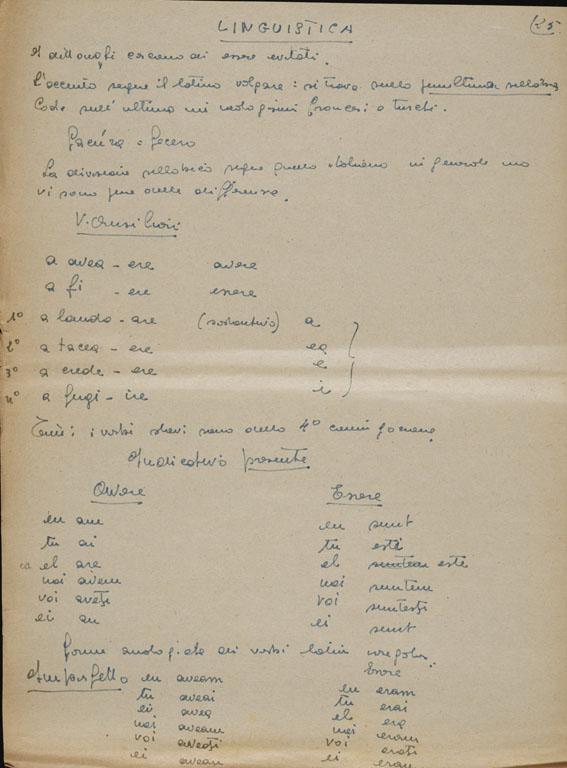 LINGUISTICA
I dittonghi cercano di essere evitati.
L'accento segue il latino volgare: si trova sulla penultima sillaba
Cade sull'ultima nei neologismi francesi o turchi.
La divisione sillabica segue quella italiana in generale ma
vi sono pure delle differenze.
V. Ausiliari
a avea - ere avere
a fi - ere essere
1º a lauda - are (sostantivo) a
2º a tacea - ere ea
3º a crede - ere e
4º a fugi - ire i
i verbi slavi sono della 4º coniugazione
Indicativo presente
Avere Essere
eu am eu sunt
tu ai tu esti
el are el este
noi avem noi suntem
voi aveţi voi sunteţi
ei au ei sunt
forme analogiche dei verbi latini irregolari.
Imperfetto Essere
eu aveam eu eram
tu aveai tu erai
el avea el era
noi aveam noi eram
voi aveaţi voi eraţi
ei aveau ei erau